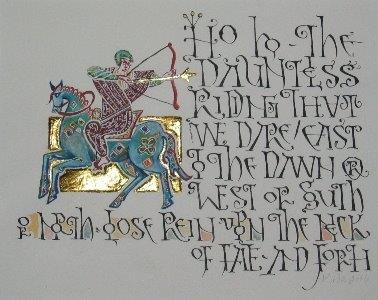 HO ho - THE
DAUNTLESS
RIDING THAT
WE DARE! EAST
TO THE DAWN OR
WEST OR SOUTH
OR NORTH · LOOSE REIN UPON THE NECK
OF FATE · AND FORTH